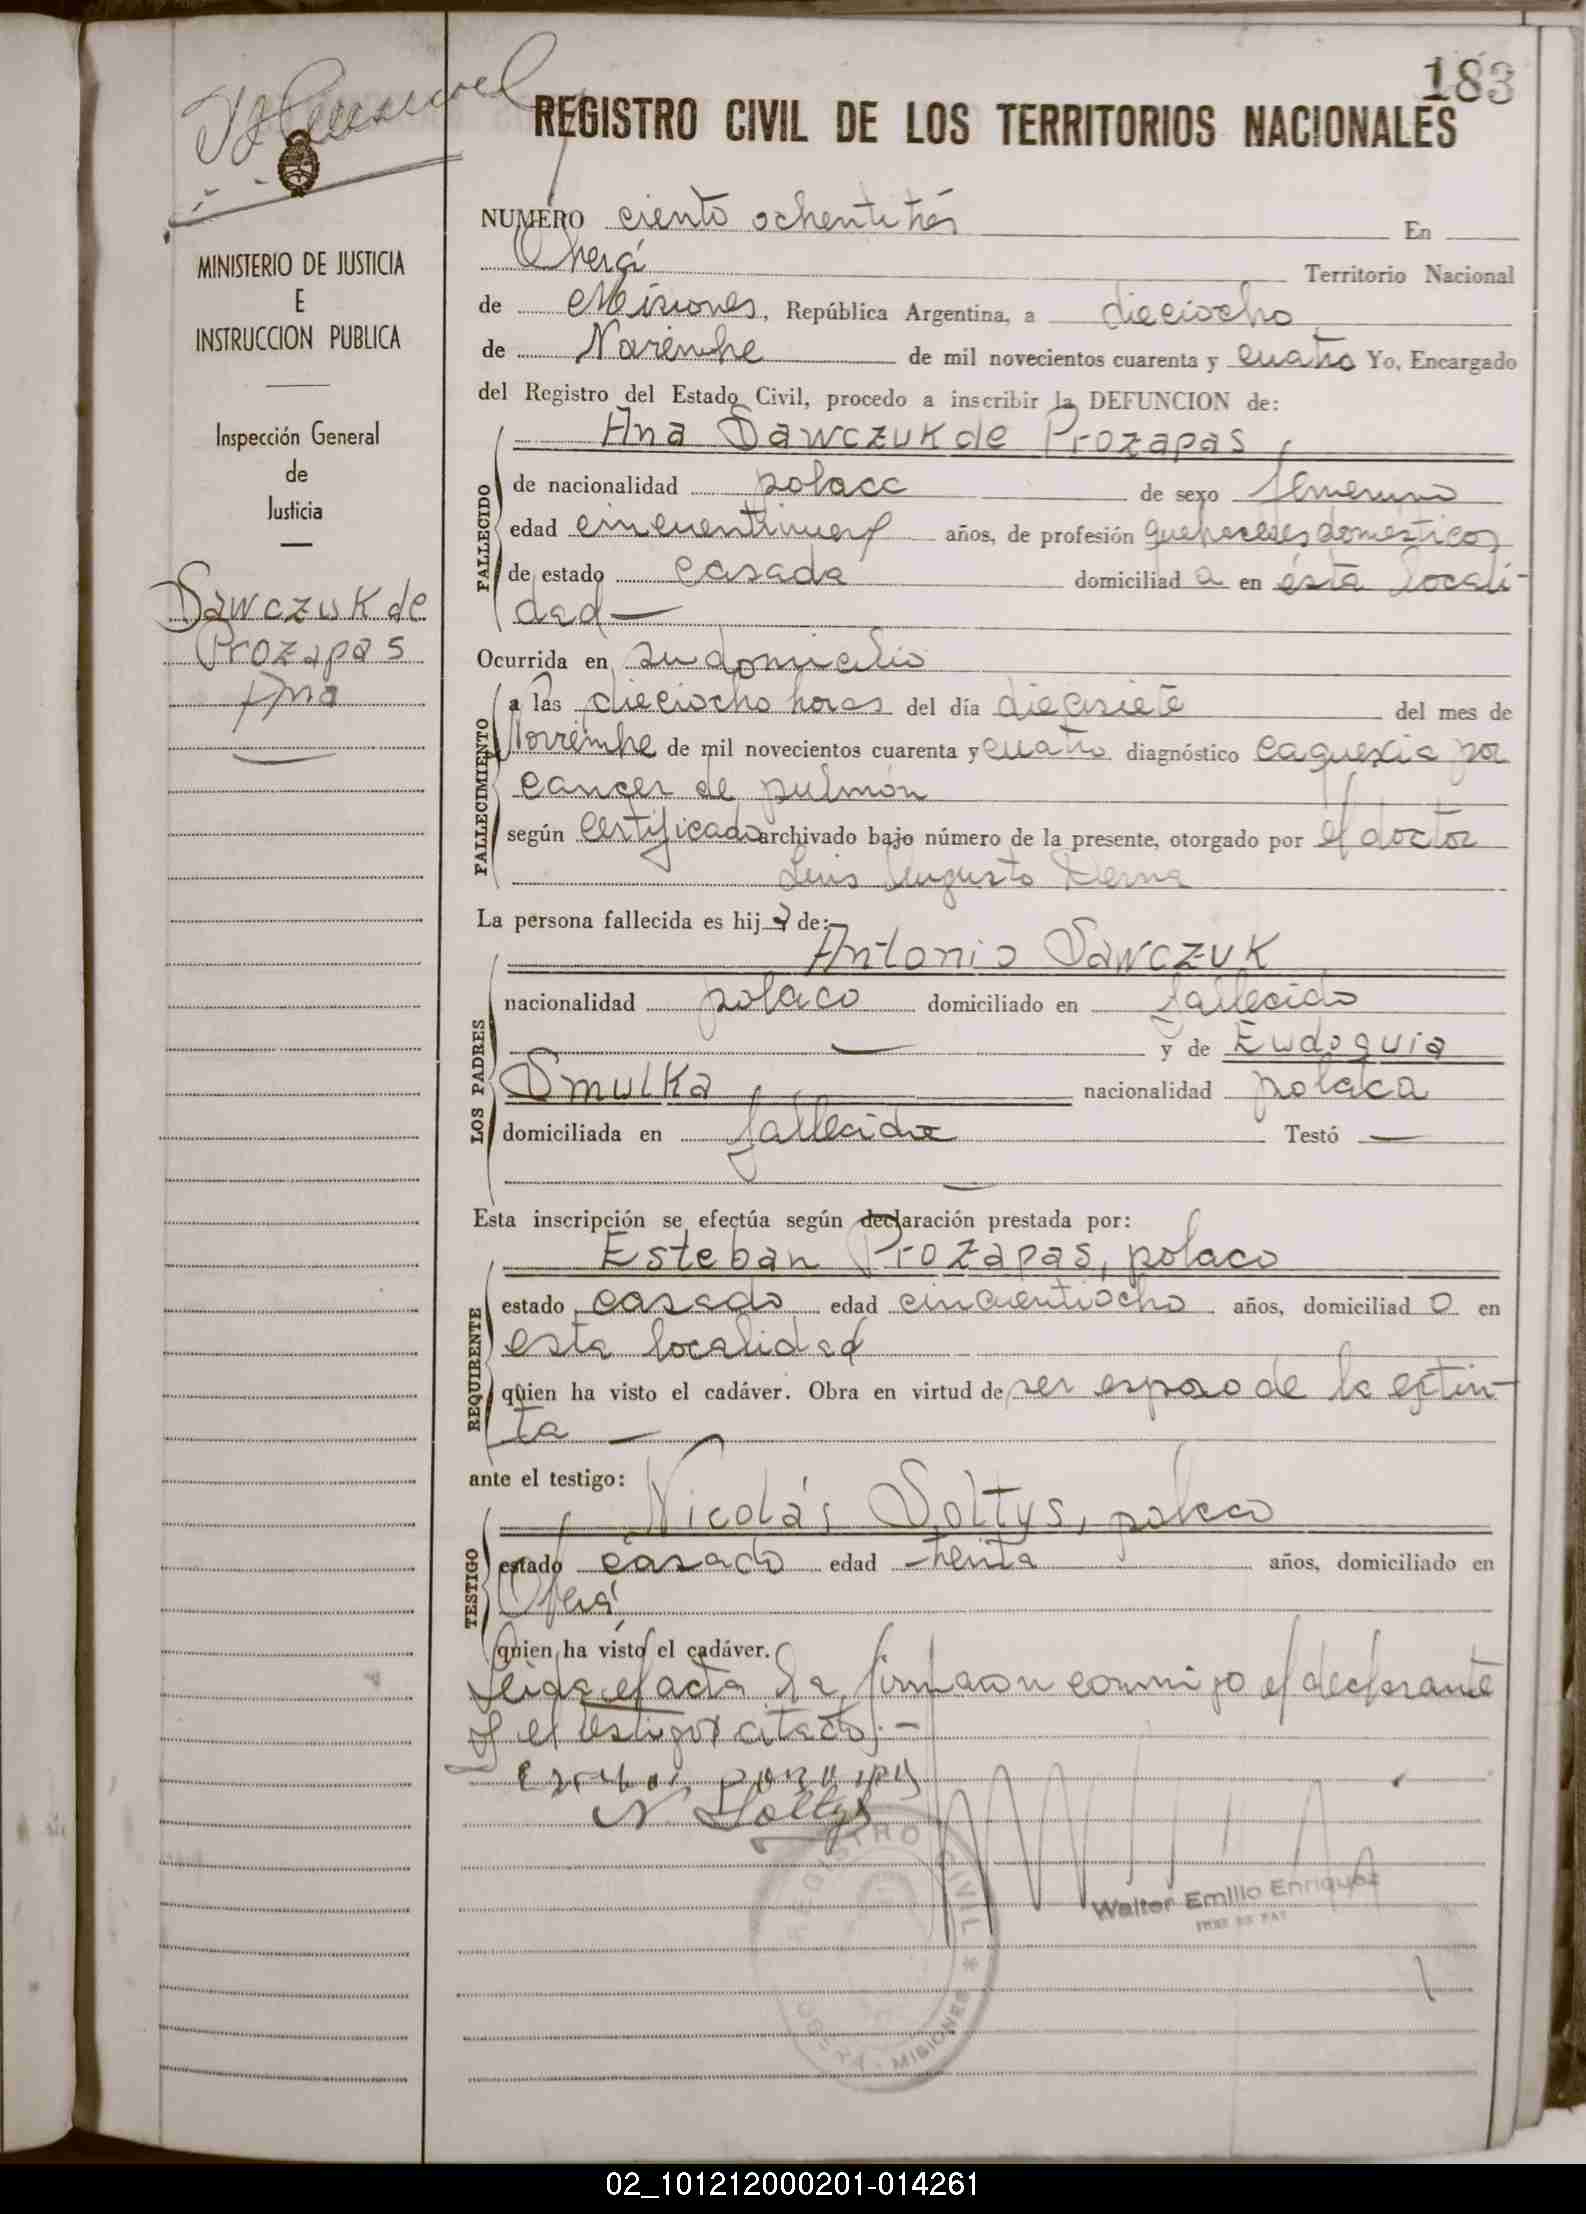 183
REGISTRO CIVIL DE LOS TERRITORIOS NACIONALES
MINISTERIO DE JUSTICIA
E
INSTRUCCION PUBLICA
Inspección General
de
Justicia
Sawczuk de
Prozapas
Ana
NUMERO ciento ochentitrés En
Oberá Territorio Nacional
de Misiones, República Argentina, a dieciocho
de Noviembre de mil novecientos cuarenta y cuatro Yo, Encargado
del Registro del Estado Civil, procedo a inscribir la DEFUNCION de:
Ana Sawczuk de Prozapas
FALLECIDO
de nacionalidad polaca de sexo femenino
edad cincuentinueve años, de profesión quehaceres domésticos
de estado casada domiciliad a en ésta locali-
dad —
Ocurrida en su domicilio
FALLECIMIENTO
a las dieciocho horas del día diecisiete del mes de
Noviembre de mil novecientos cuarenta y cuatro diagnóstico caquexia por
cancer de pulmón
según certificado archivado bajo número de la presente, otorgado por el doctor
Luis Augusto Derna
La persona fallecida es hij a de:
Antonio Sawczuk
LOS PADRES
nacionalidad polaco domiciliado en fallecido
— y de Eudoquia
Smulka nacionalidad polaca
domiciliada en fallecida Testó —
Esta inscripción se efectúa según declaración prestada por:
Esteban Prozapas, polaco
REQUIRENTE
estado casado edad cincuentiocho años, domiciliad o en
esta localidad
quien ha visto el cadáver. Obra en virtud de ser esposo de la extin-
ta —
ante el testigo:
Nicolás Soltys, polaco
TESTIGO
estado casado edad treinta años, domiciliado en
Oberá
quien ha visto el cadáver.
Leida el acta la firmaron conmigo el declarante
y el testigo citado. —
N. Soltys
REGISTRO CIVIL * OBERA - MISIONES
Walter Emilio Enriquez
JUEZ DE PAZ
02_101212000201-014261